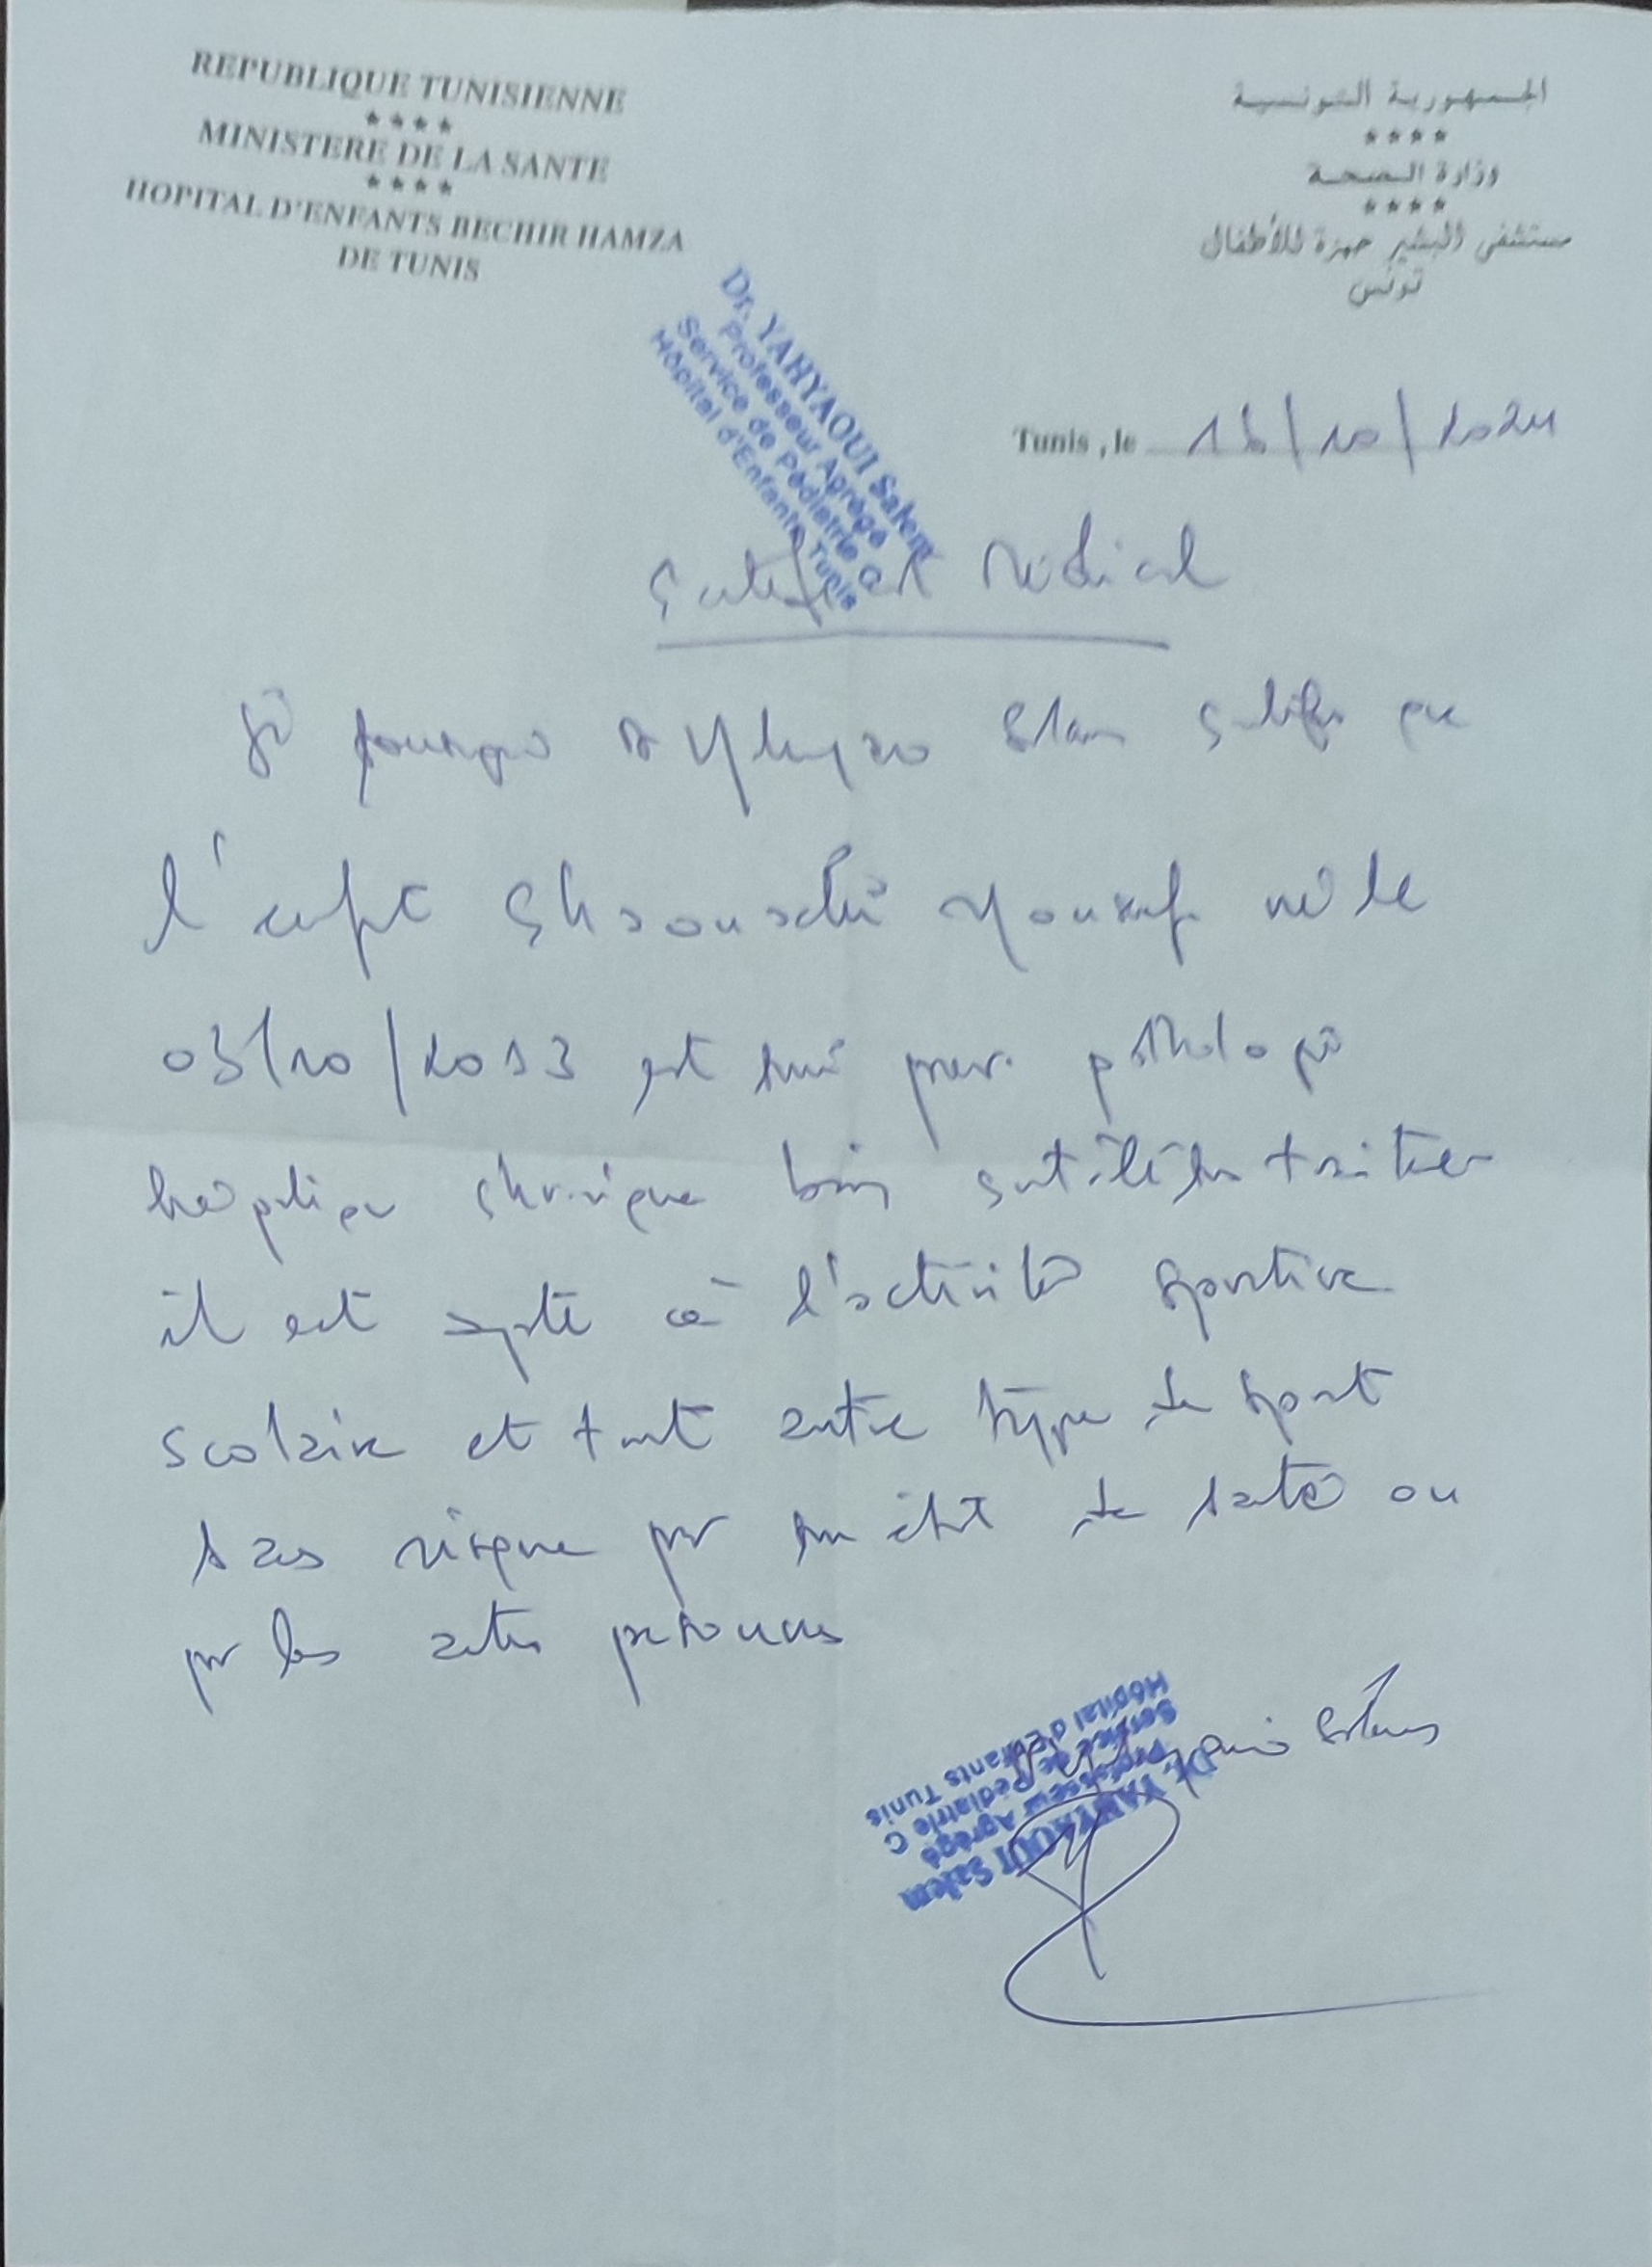 REPUBLIQUE TUNISIENNE
★★★★
MINISTERE DE LA SANTE
★★★★
HOPITAL D'ENFANTS BECHIR HAMZA
DE TUNIS
الجمهورية التونسية
★★★★
وزارة الصحة
★★★★
مستشفى البشير حمزة للأطفال
تونس
Dr. YAHYAOUI Salem
Professeur Agrégé
Service de Pédiatrie C
Hôpital d'Enfants Tunis
Tunis, le /10/2024
Certificat Médical
que
l'enfant Youssef né le
03/10/2013 est suivi pour pathologie
hépatique chronique bien
il est apte à l'activité sportive
scolaire et tout autre type de sport
sans risque pour son état de santé ou
pour les autres personnes
Dr. YAHYAOUI Salem
Professeur Agrégé
Service de Pédiatrie C
Hôpital d'Enfants Tunis